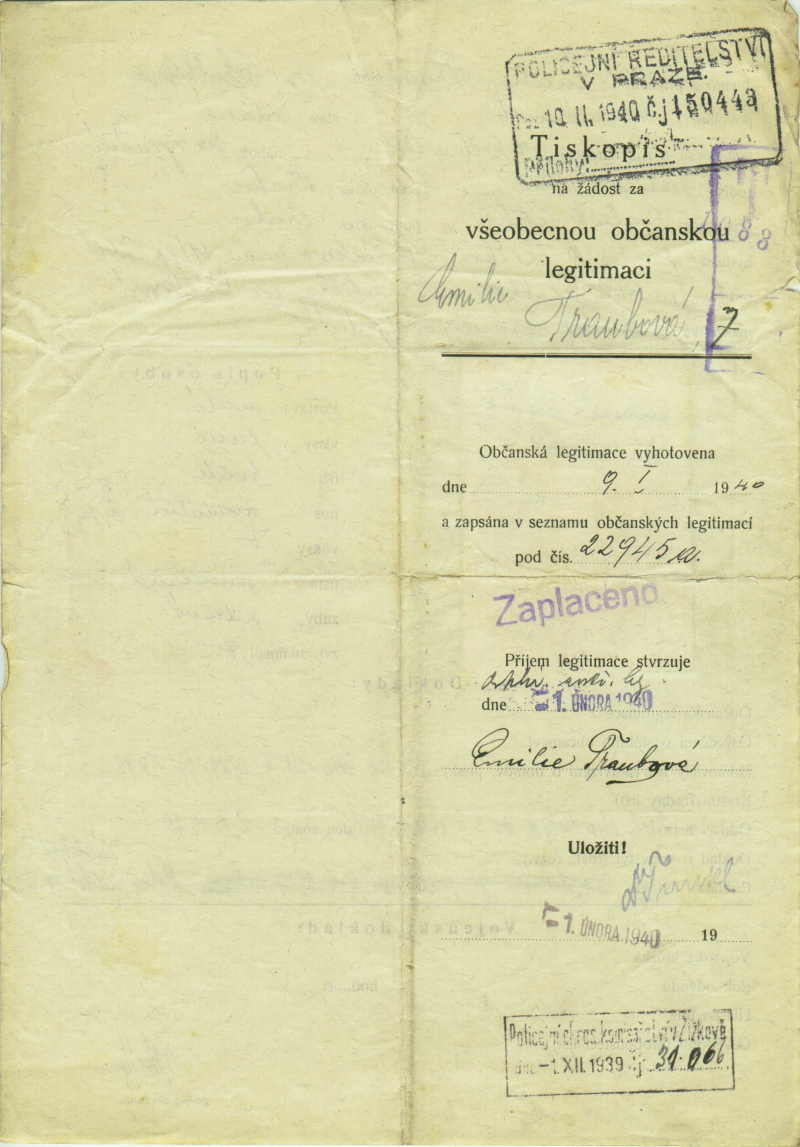 POLICEJNÍ ŘEDITELSTVÍ
V PRAZE.
10. II. 1940 č.j. 150443
Tiskopis
Přílohy:
na žádost za
všeobecnou občanskou
88
legitimaci
Emilie
Traubová
7
Občanská legitimace vyhotovena
dne 9. I 1940
a zapsána v seznamu občanských legitimací
pod čís. 22945/a.
Zaplaceno
Příjem legitimace stvrzuje
dne -1. ÚNORA 1940
Emilie Traubová
Uložiti!
-1. ÚNORA 1940 19
Policejní okres. komisařství v Žižkově
dne -1. XII. 1939 čj. 31.066
Popis osoby:
Doklady:
Vojenské doklady: